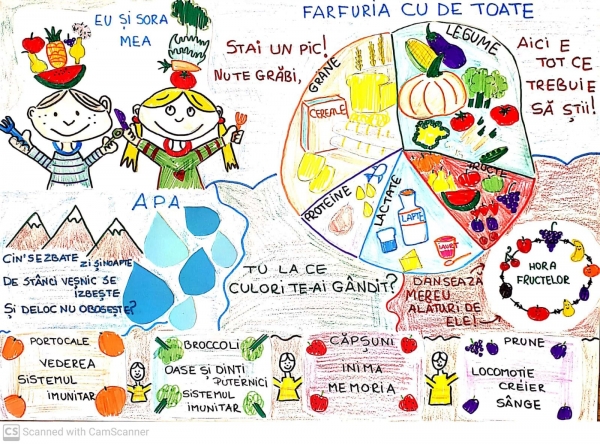 EU ȘI SORA
MEA
FARFURIA CU DE TOATE
STAI UN PIC!
NU TE GRĂBI,
AICI E
TOT CE
TREBUIE
SĂ ȘTII!
GRÂNE
CEREALE
LEGUME
PROTEINE
LACTATE
LAPTE
IAURT
FRUCTE
APA
CIN'SE ZBATE ZI ȘI NOAPTE
DE STÂNCI VEȘNIC SE
IZBEȘTE
ȘI DELOC NU OBOSEȘTE?
TU LA CE
CULORI TE-AI GÂNDIT?
DANSEAZĂ
MEREU
ALĂTURI DE
ELE!
HORA
FRUCTELOR
PORTOCALE
VEDEREA
SISTEMUL
IMUNITAR
BROCCOLI
OASE ȘI DINȚI
PUTERNICI
SISTEMUL
IMUNITAR
CĂPȘUNI
INIMA
MEMORIA
PRUNE
LOCOMOTIE
CREIER
SÂNGE
CS Scanned with CamScanner